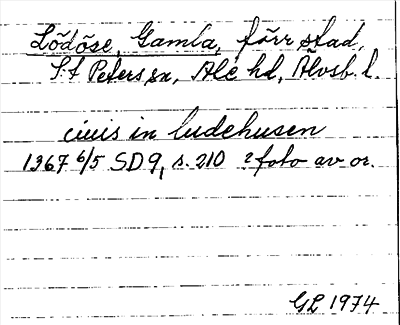 Lödöse, Gamla, förr stad,
S:t Peters sn, Ale hd, Älvsb. l.
civis in ludehusen
1367 6/5 SD 9, s. 210 2 foto av or.
GL 1974